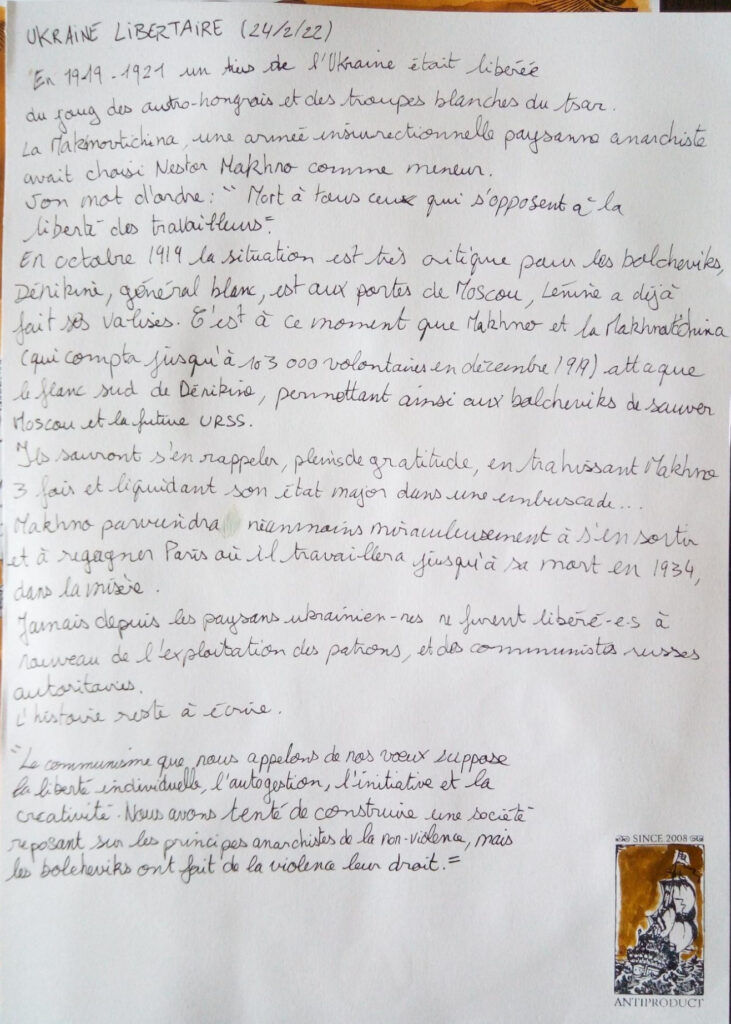 UKRAINE LIBERTAIRE (24/2/22)
En 1919-1921 un tiers de l'Ukraine était libérée
du joug des autro-hongrois et des troupes blanches du tsar.
La Makhnovtchina, une armée insurrectionnelle paysanne anarchiste
avait choisi Nestor Makhno comme meneur.
Son mot d'ordre : " Mort à tous ceux qui s'opposent à la
liberté des travailleurs "
En octobre 1919 la situation est très critique pour les bolcheviks,
Dénikine, général blanc, est aux portes de Moscou, Lénine a déjà
fait ses valises. C'est à ce moment que Makhno et la Makhnotchina
(qui compta jusqu'à 103 000 volontaires en décembre 1919) attaque
le flanc sud de Dénikine, permettant ainsi aux bolcheviks de sauver
Moscou et la future URSS.
Ils sauront s'en rappeler, pleins de gratitude, en trahissant Makhno
3 fois et liquidant son état major dans une embuscade...
Makhno parviendra néanmoins miraculeusement à s'en sortir
et à regagner Paris où il travaillera jusqu'à sa mort en 1934,
dans la misère.
Jamais depuis les paysans ukrainien-nes ne furent libéré-e-s à
nouveau de l'exploitation des patrons, et des communistes russes
autoritaires.
L'histoire reste à écrire.
"Le communisme que nous appelons de nos vœux suppose
la liberté individuelle, l'autogestion, l'initiative et la
créativité. Nous avons tenté de construire une société
reposant sur les principes anarchistes de la non-violence, mais
les bolcheviks ont fait de la violence leur droit."
SINCE 2008
ANTIPRODUCT